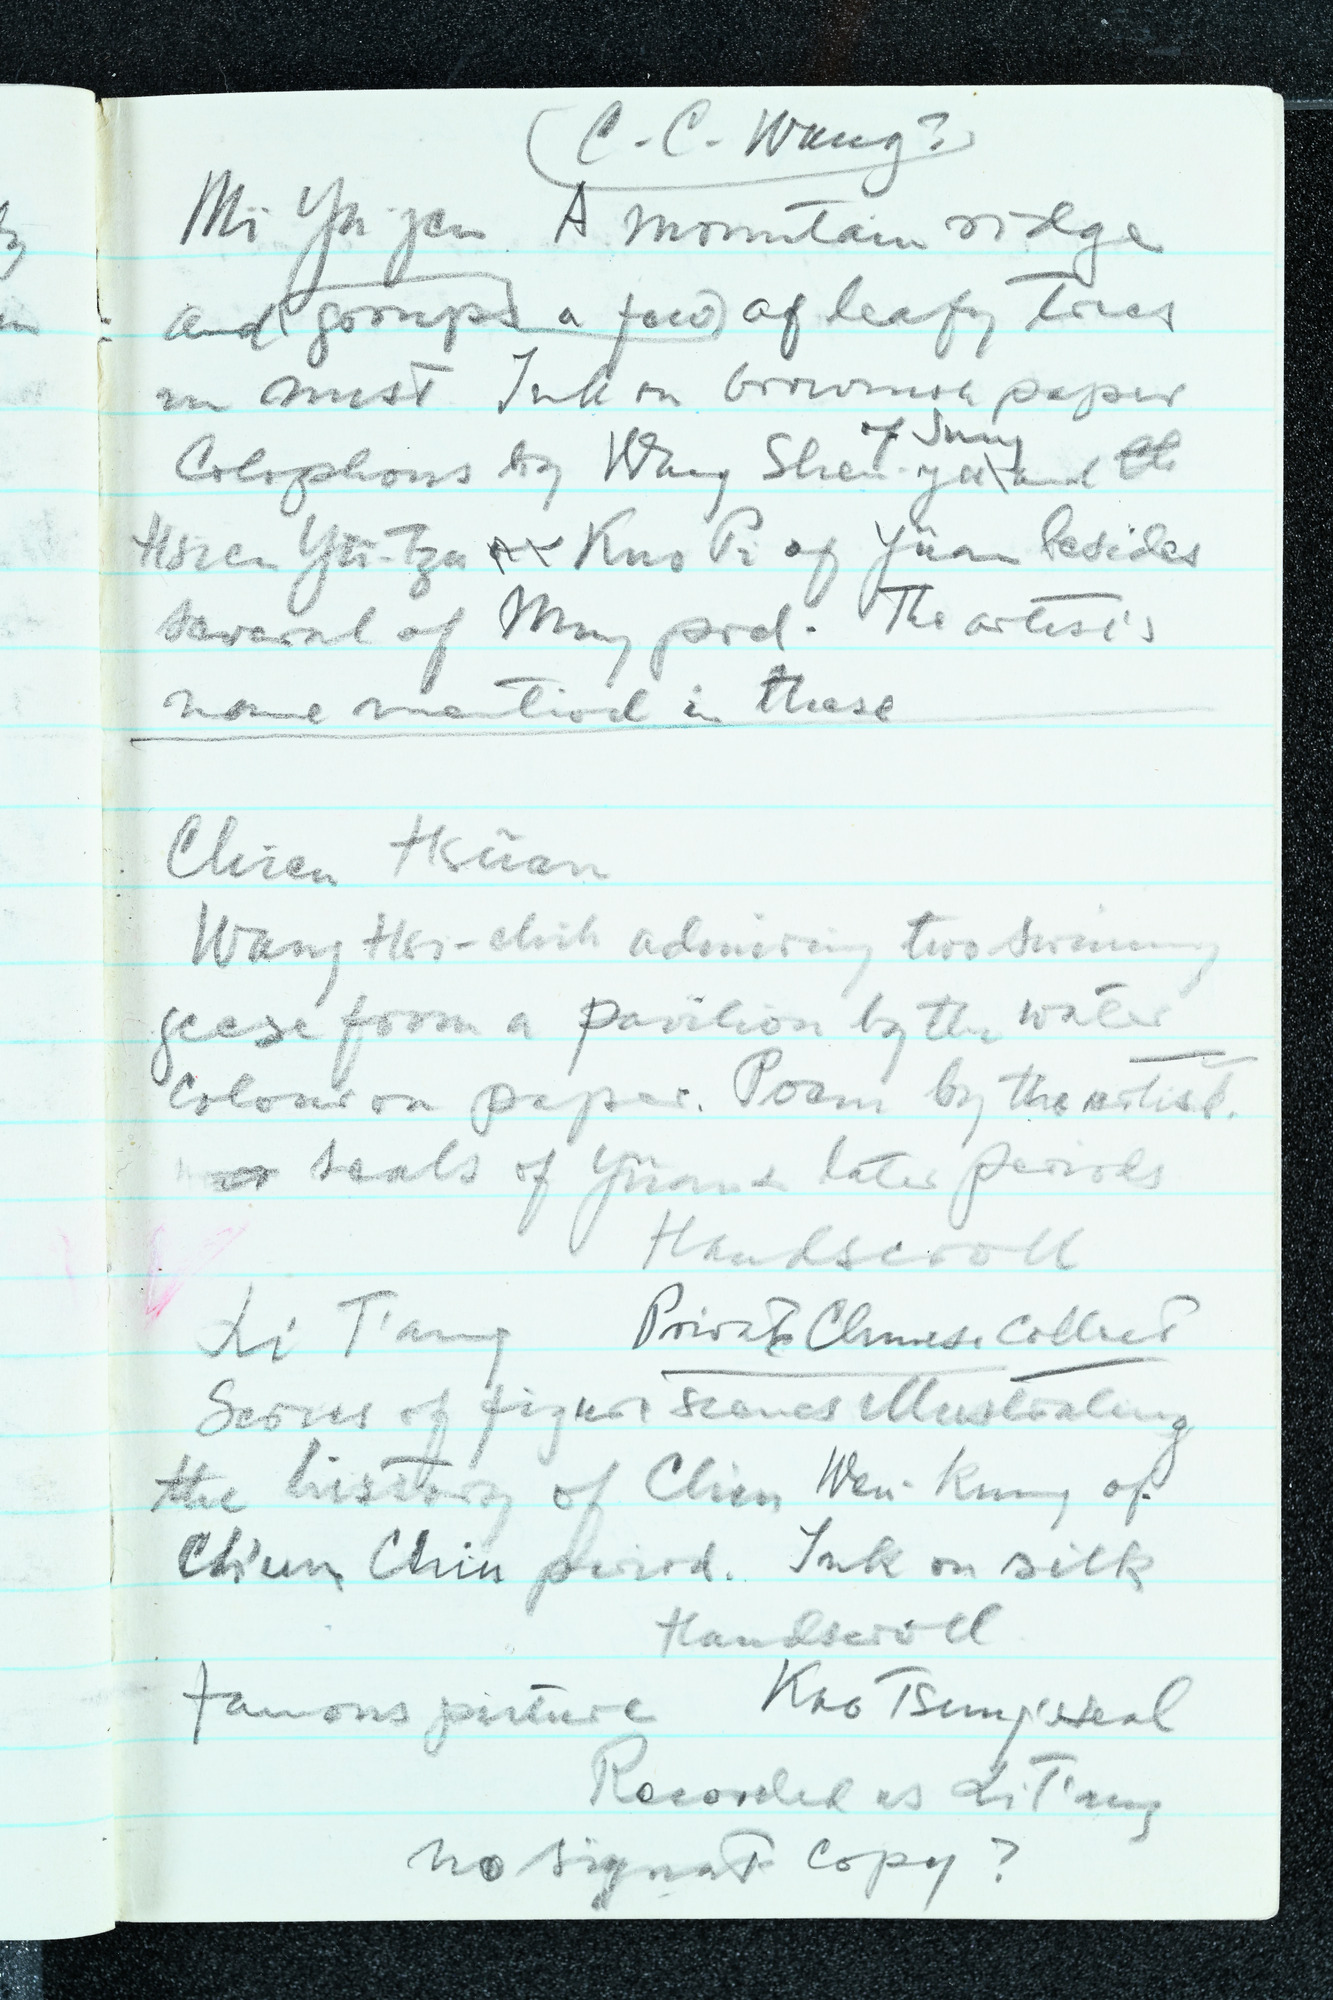 (C.-C. Wang?)
Mi Yu-jen A mountain ridge
and (groups a few) of leafy trees
in mist Ink on brownish paper
Colophons by Wang Shen-yü of Sung and
Hsien Yü-tzu Kuo Pi of Yüan besides
several of Ming prd. The artist's
name mentiod in these
Chien Hsüan
Wang Hsi-chih admiring two swimmng
geese from a pavilion by the water
Colour on paper. Poem by the artist.
seals of Yüan & later periods
Handscroll
Li T'ang Privat Chinese collect
Series of figure scenes illustrating
the history of Chin Wen-kung of
Ch'un Chiu period. Ink on silk
Handscroll
Famous picture Kao Tsung's seal
Recorded as Li T'ang
no signat copy?